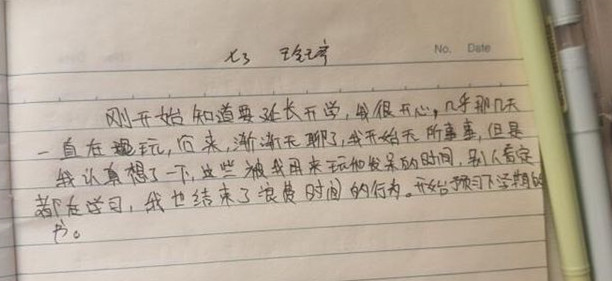 七3
No. Date
刚开始知道要延长开学,我很开心,几乎那几天
一直在玩,后来,渐渐无聊了,我开始无所事事,但是
我认真想了一下,这些被我用来玩和发呆的时间,别人肯定
都在学习,我也结束了浪费时间的行为。开始预习下学期的
书。